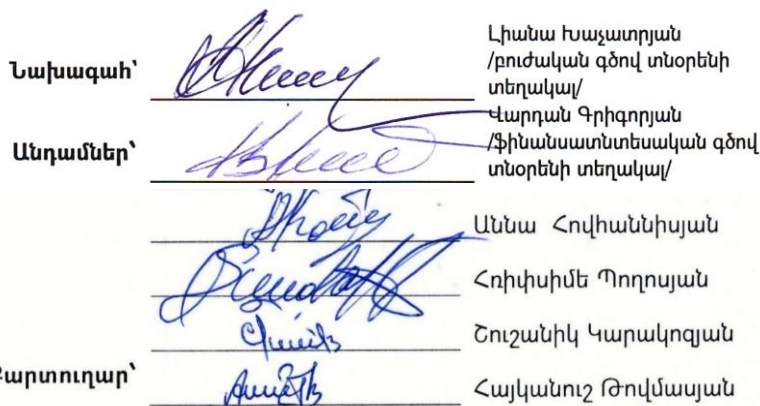 Նախագահ՝
Լիանա Խաչատրյան
/բուժական գծով տնօրենի
տեղակալ/
Անդամներ՝
Վարդան Գրիգորյան
/ֆինանսատնտեսական գծով
տնօրենի տեղակալ/
Աննա Հովհաննիսյան
Հռիփսիմե Պողոսյան
Շուշանիկ Կարակոզյան
Քարտուղար՝ Հայկանուշ Թովմասյան